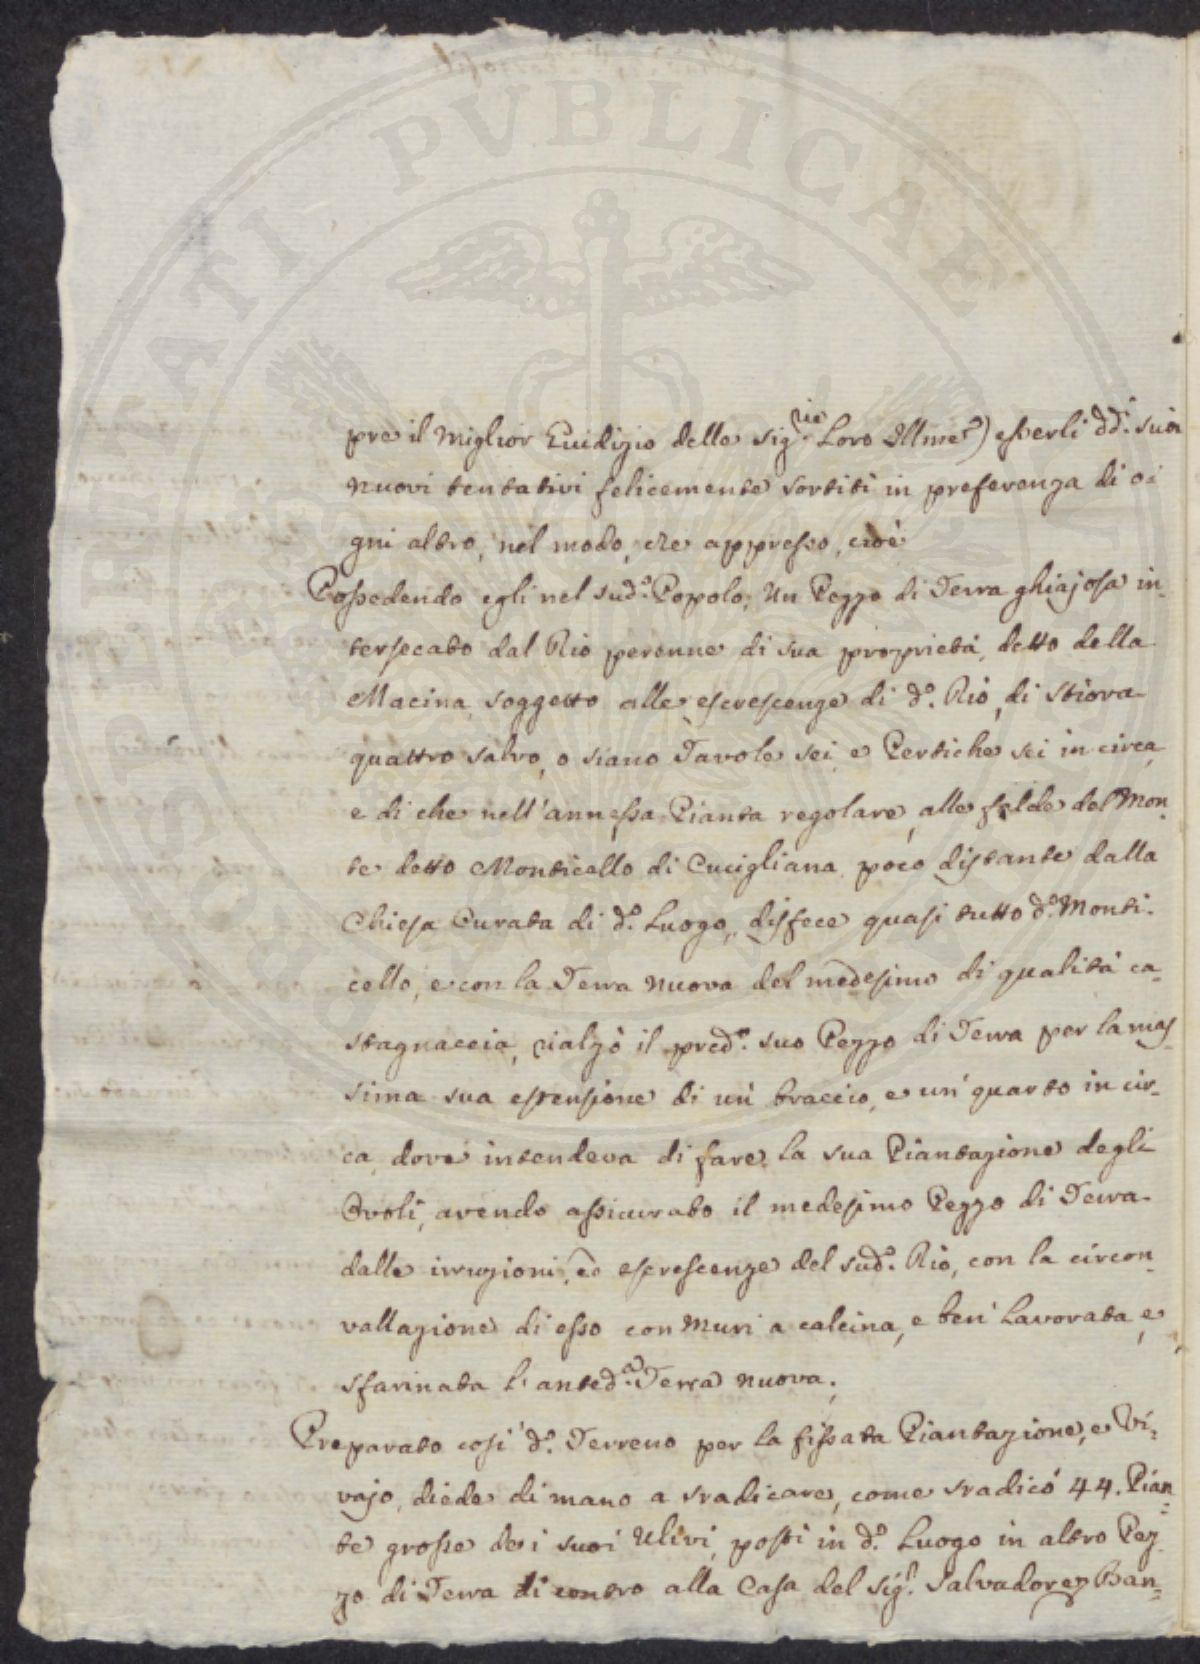 PROSPERITATI PVBLICAE
pre il miglior Giudizio delle Sig.rie Loro Illme) esserli dd.i suoi
nuovi tentativi felicemente sortiti in preferenza di o-
gni altro, nel modo, che appresso, cioè
Possedendo egli nel sud.o Popolo, Un Pezzo di Terra ghiajosa in-
tersecato dal Rio perenne di sua proprietà, detto della
Macina, soggetto alle escrescenze di d.o Rio, di stiora
quattro salvo, o siano Tavole sei, e Pertiche sei in circa,
e di che nell'annessa Pianta regolare, alle falde del Mon-
te detto Monticello di Cucigliana, poco distante dalla
Chiesa Curata di d.o Luogo, disfece quasi tutto d.o Monti-
cello, e con la Terra nuova del medesimo di qualità ca-
stagnaccia, rialzò il pred.o suo Pezzo di Terra per la mas-
sima sua estensione di un braccio, e un quarto in cir-
ca, dove intendeva di fare la sua Piantazione degli
Ovoli, avendo assicurato il medesimo Pezzo di Terra
dalle irruzioni, ed escrescenze del sud.o Rio, con la circon-
vallazione di esso con Muri a calcina, e ben lavorata, e
sfarinata l'anted.a Terra nuova;
Preparato così d.o Terreno per la fissata Piantazione, e Vi-
vajo, diede di mano a sradicare, come sradicò 44. Pian-
te grosse dei suoi Ulivi, posti in d.o Luogo in altro Pez-
zo di Terra di contro alla Casa del Sig.r Salvadore Ban-